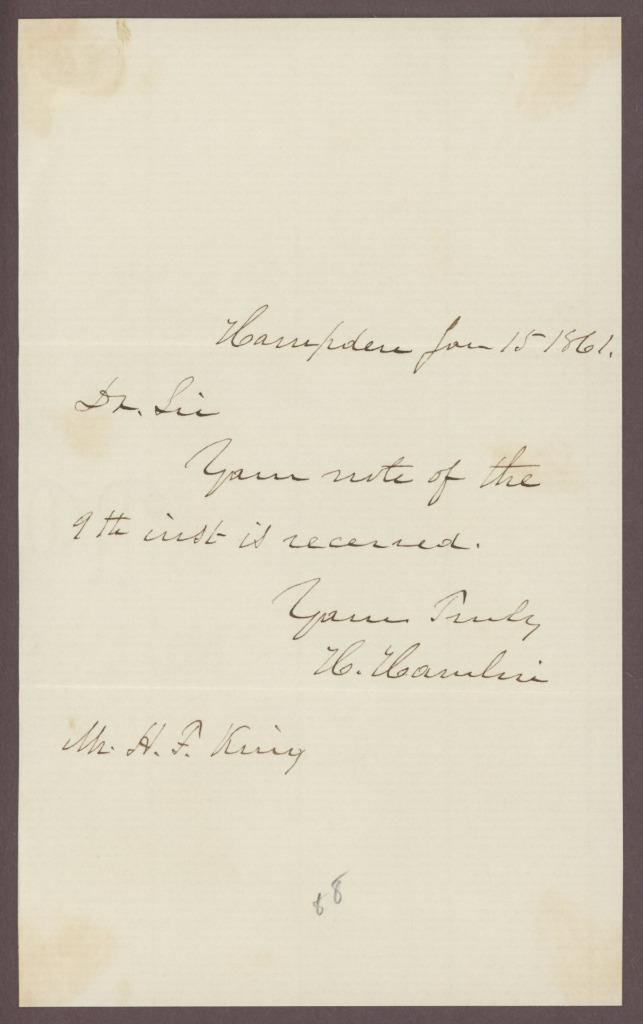 Hampden Jan 15 1861.
Dr. Sir
Your note of the
9th inst is received.
Yours Truly
H. Hamlin
Mr. H. F. King
88